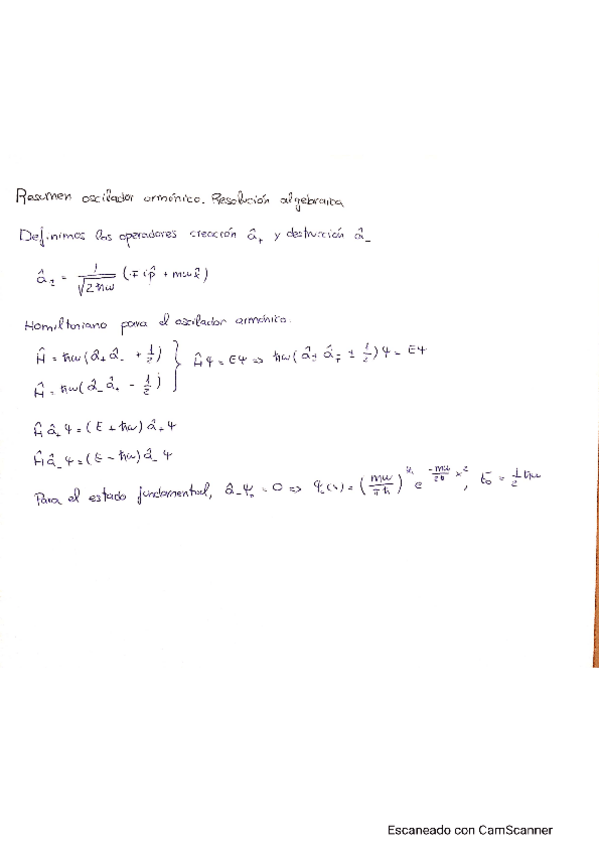 Resumen oscilador armónico. Resolución algebraica
Definimos los operadores creación â₊ y destrucción â₋
â± = 1/√(2ħω) (∓ i p̂ + mωx̂)
Hamiltoniano para el oscilador armónico.
Ĥ = ħω(â₊â₋ + 1/2) } Ĥψ = Eψ ⇒ ħω(â± â∓ ± 1/2)ψ = Eψ
Ĥ = ħω(â₋â₊ - 1/2)
Ĥâ₊ψ = (E + ħω)â₊ψ
Ĥâ₋ψ = (E - ħω)â₋ψ
Para el estado fundamental, â₋ψ₀ = 0 ⇒ ψ₀(x) = (mω/πħ)^¼ e^(-mω/2ħ x²), E₀ = 1/2 ħω
Escaneado con CamScanner